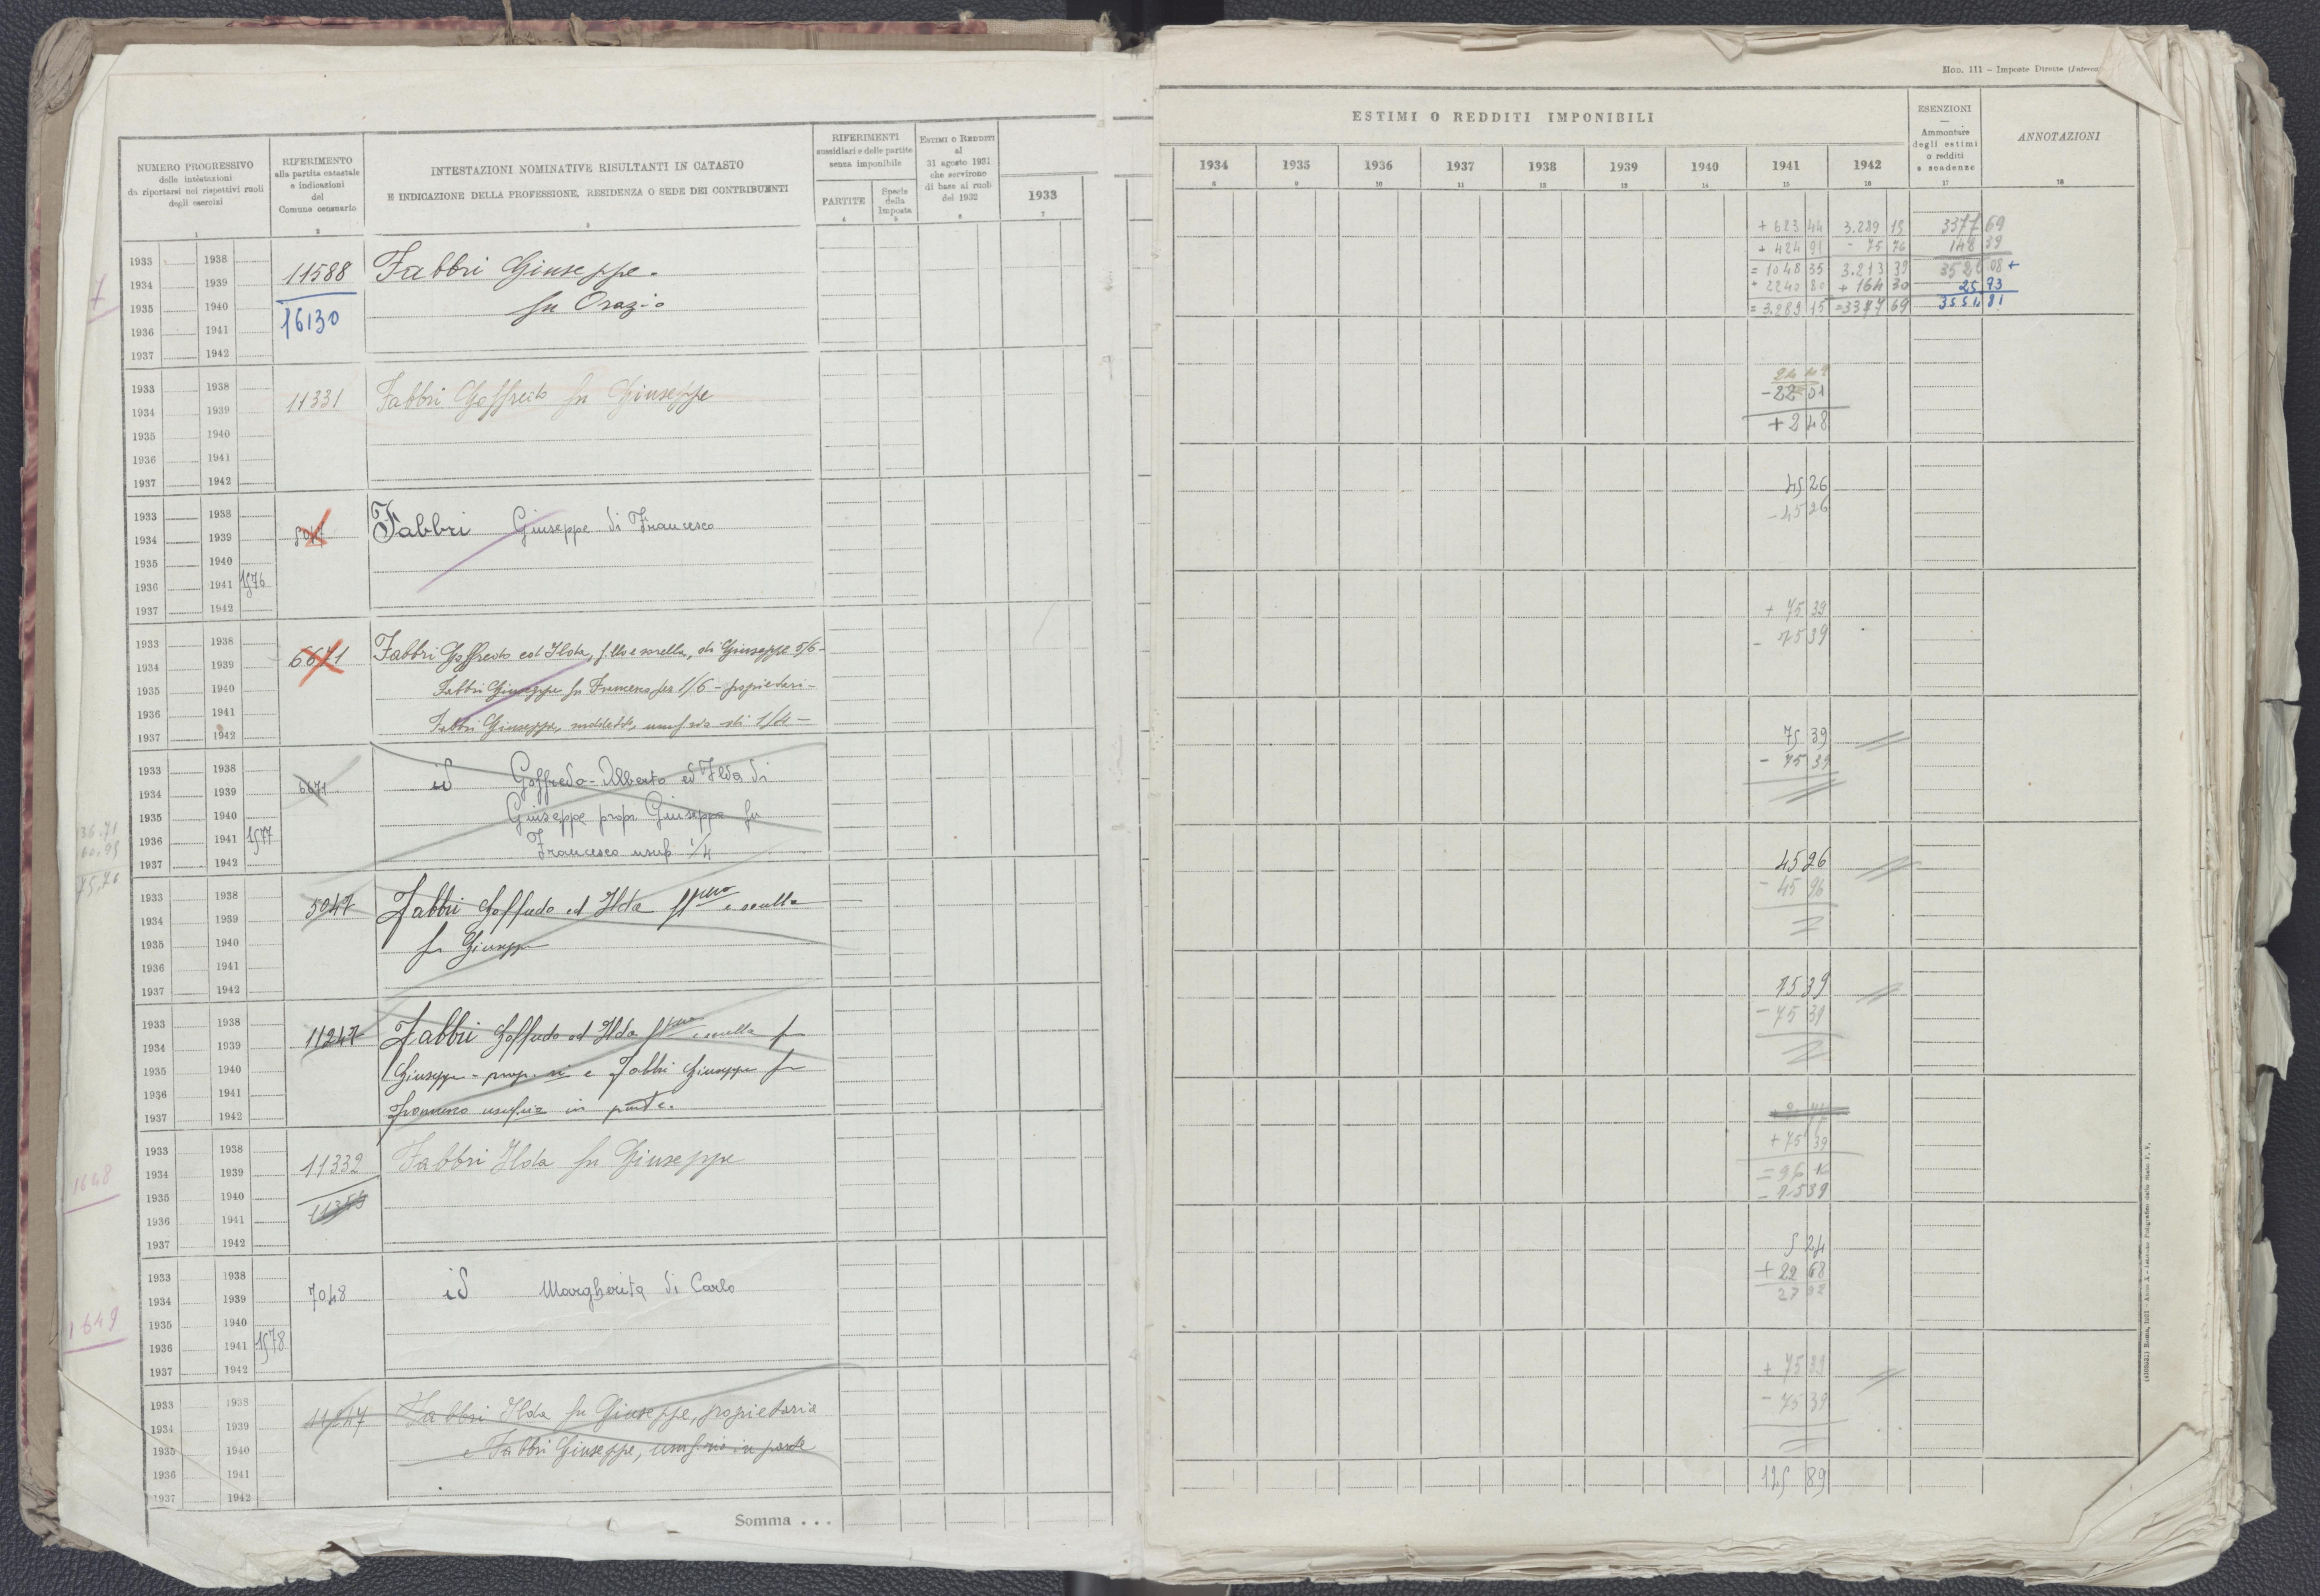 Mod. 111 – Imposte Dirette
NUMERO PROGRESSIVO
delle intestazioni
da riportarsi nei rispettivi ruoli
degli esercizi
1
RIFERIMENTO
alla partita catastale
e indicazioni
del
Comune censuario
2
INTESTAZIONI NOMINATIVE RISULTANTI IN CATASTO
E INDICAZIONE DELLA PROFESSIONE, RESIDENZA O SEDE DEI CONTRIBUENTI
3
RIFERIMENTI
sussidiari e delle partite
senza imponibile
PARTITE
4
Specie
della
Imposta
5
ESTIMI O REDDITI
al
31 agosto 1931
che servirono
di base ai ruoli
del 1932
6
1933
7
ESTIMI O REDDITI IMPONIBILI
1934 1935 1936 1937 1938 1939 1940 1941 1942
8 9 10 11 12 13 14 15 16
ESENZIONI
—
Ammontare
degli estimi
o redditi
e scadenze
17
ANNOTAZIONI
18
7
1933 1938
1934 1939
1935 1940
1936 1941
1937 1942
11588
16130
Fabbri Giuseppe.
fu Orazio
+ 623 44 3.289 15 3377 69
+ 424 91 - 75 76 148 39
= 1048 35 3.213 39
+ 2240 80 + 164 30 25 93
= 3.289 15 = 3377 69
1933 1938
1934 1939
1935 1940
1936 1941
1937 1942
11331
Fabbri Goffredo fu Giuseppe
- 22 01
+ 2 48
1933 1938
1934 1939
1935 1940
1936 1941 1576
1937 1942
5047
Fabbri Giuseppe di Francesco
45 26
- 45 26
1933 1938
1934 1939
1935 1940
1936 1941
1937 1942
6671
Fabbri Goffredo ed Ilda, f.llo e sorella, di Giuseppe 5/6 -
Fabbri Giuseppe fu Francesco per 1/6 - proprietari -
Fabbri Giuseppe, suddetto, usuf.rio di 1/4 -
+ 75 39
- 75 39
1933 1938
1934 1939
1935 1940
1936 1941 1577
1937 1942
6671
id Goffredo-Alberto ed Ilda di
Giuseppe propr. Giuseppe fu
Francesco usuf. 1/4
75 39
- 75 39
36.71
75,76
1933 1938
1934 1939
1935 1940
1936 1941
1937 1942
5047
Fabbri Goffredo ed Ilda e sorella
fu Giuseppe
45 26
- 45 26
1933 1938
1934 1939
1935 1940
1936 1941
1937 1942
11247
Fabbri Goffredo ed Ilda e sorella fu
Giuseppe - propr. ri e Fabbri Giuseppe fu
Francesco usuf.rio in parte.
75 39
- 75 39
1648
1933 1938
1934 1939
1935 1940
1936 1941
1937 1942
11332
Fabbri Ilda fu Giuseppe
+ 75 39
- 75 39
1649
1933 1938
1934 1939
1935 1940
1936 1941 1578
1937 1942
7048
id Margherita di Carlo
5 24
+ 22 68
27 92
1933 1938
1934 1939
1935 1940
1936 1941
1937 1942
11247
Fabbri Ilda fu Giuseppe, proprietaria
e Fabbri Giuseppe, usuf.rio in parte
+ 75 39
- 75 39
Somma . . .
125 89